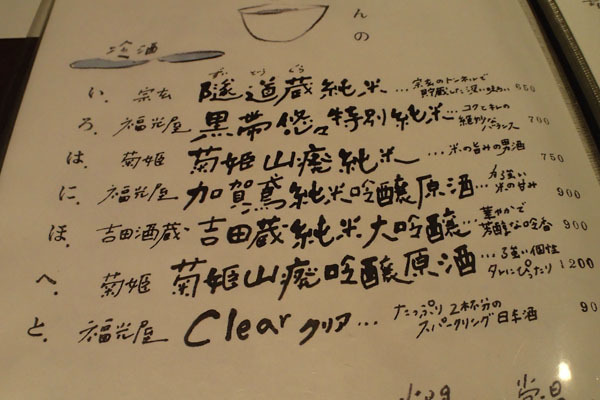 んの
冷酒
い. 宗玄 隧道蔵純米 … 宗玄のトンネルで貯蔵した深い味わい 650
ずいどうぐら
ろ. 福光屋 黒帯悠々特別純米 … コクとキレの絶妙なバランス 700
は. 菊姫 菊姫山廃純米 … 米の旨みの男酒 750
に. 福光屋 加賀鳶純米吟醸原酒 … 力強い米の甘み 900
ほ. 吉田酒蔵 吉田蔵純米大吟醸 … 華やかで芳醇な吟香 900
へ. 菊姫 菊姫山廃吟醸原酒 … 強い個性 タレにぴったり 1200
と. 福光屋 Clear クリア … たっぷり2杯分のスパークリング日本酒 90